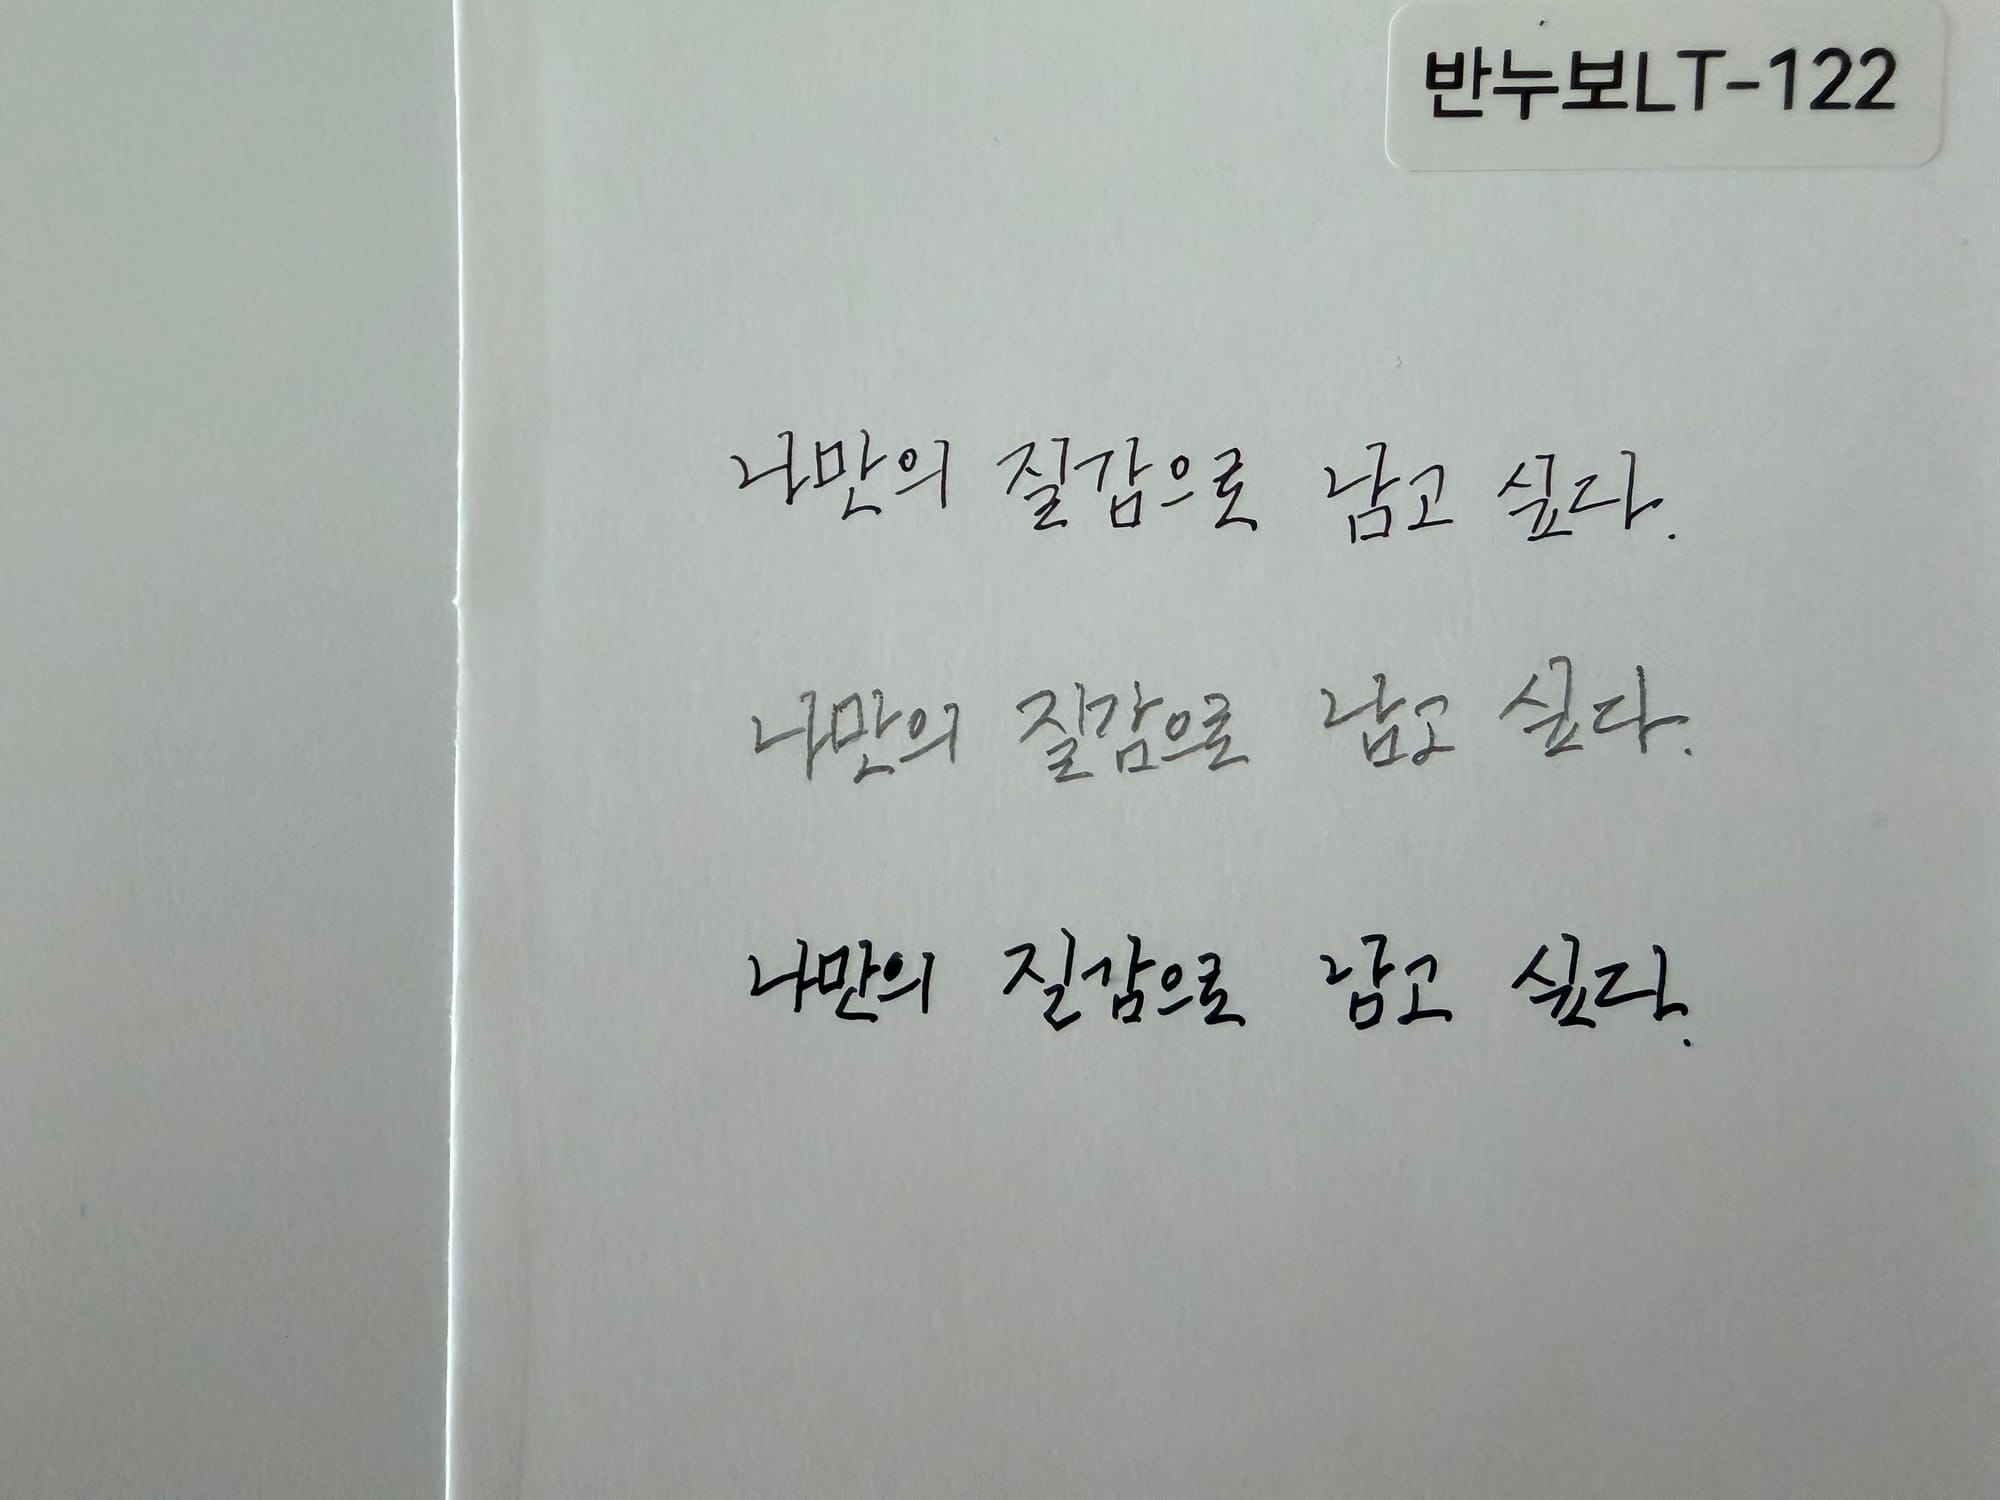 반누보LT-122
나만의 질감으로 남고 싶다.
나만의 질감으로 남고 싶다.
나만의 질감으로 남고 싶다.